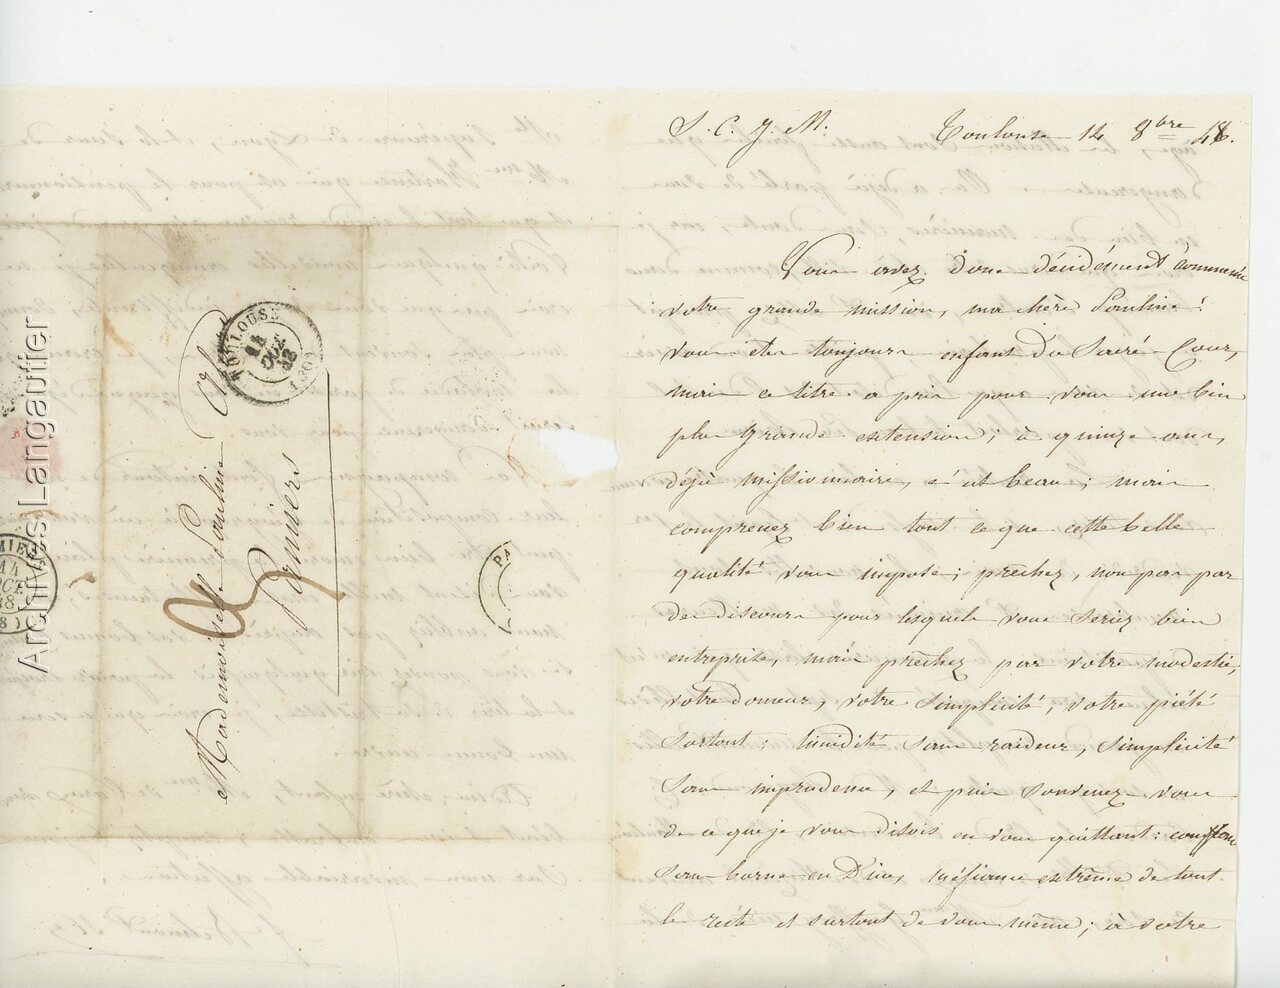 S. C. J. M. Toulouse 14 8bre 48.
Vous avez donc décidément commencé
votre grande mission, ma chère Pauline!
vous êtes toujours enfant du Sacré-Cœur,
mais ce titre a pris pour vous une bien
plus grande extension; à quinze ans,
déjà missionnaire, c'est beau; mais
comprenez bien tout ce que cette belle
qualité vous impose; prêchez, non pas par
des discours pour lesquels vous seriez bien
entreprise, mais prêchez par votre modestie,
votre douceur, votre simplicité, votre piété
surtout: timidité sans raideur, simplicité
sans imprudence, et puis souvenez-vous
de ce que je vous disois en vous quittant: confiance
sans borne en Dieu, méfiance extrême de tout
le reste et surtout de vous même; à votre
Mademoiselle Pauline
Pamiers
TOULOUSE
14
OCT
48
(30)
PAMIERS
14
OCT
48
(8)
PA
Archives Langautier